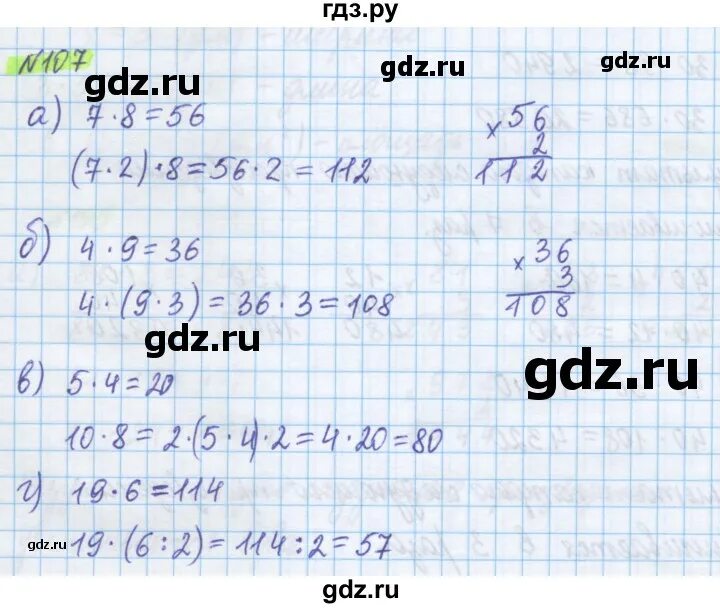 гдз.ру
N107
gdz.ru
gdz.ru
а) 7·8=56
× 56
2
112
(7·2)·8=56·2=112
б) 4·9=36
× 36
3
108
4·(9·3)=36·3=108
gdz.ru
gdz.ru
в) 5·4=20
10·8=2·(5·4)·2=4·20=80
г) 19·6=114
gdz.ru
19·(6:2)=114:2=57
gdz.ru
gdz.ru